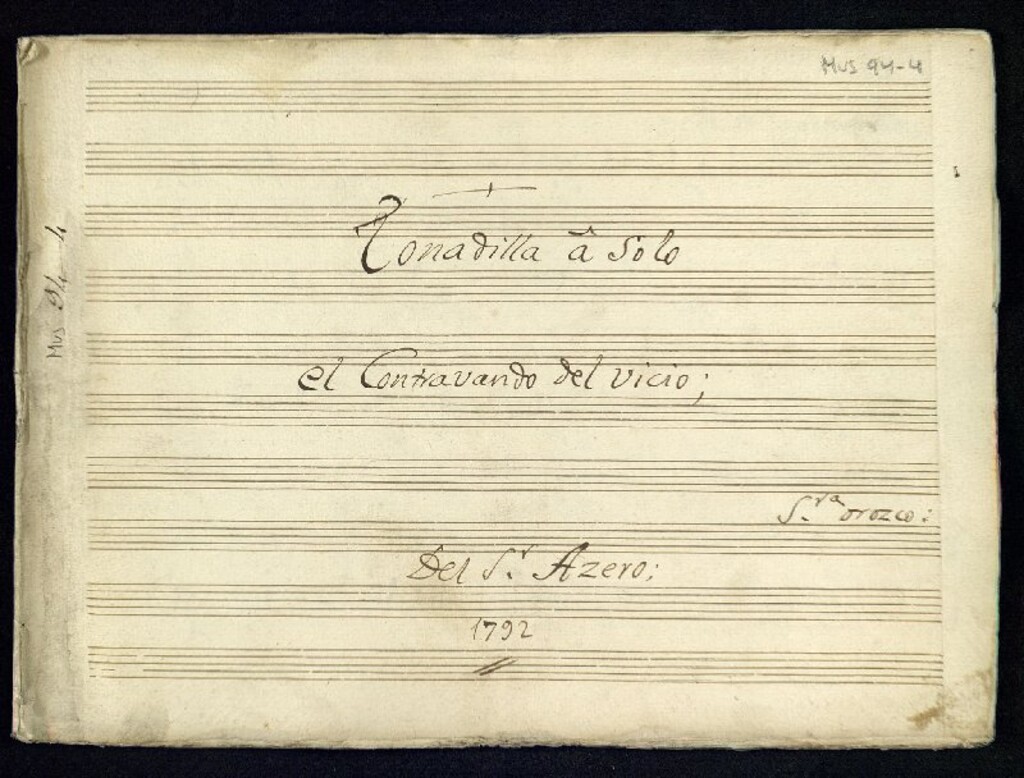 Mus 94-4
Mus 94-4
Tonadilla â Solo
el Contravando del vicio;
S.ra orozco:
Del S.r Azero;
1792